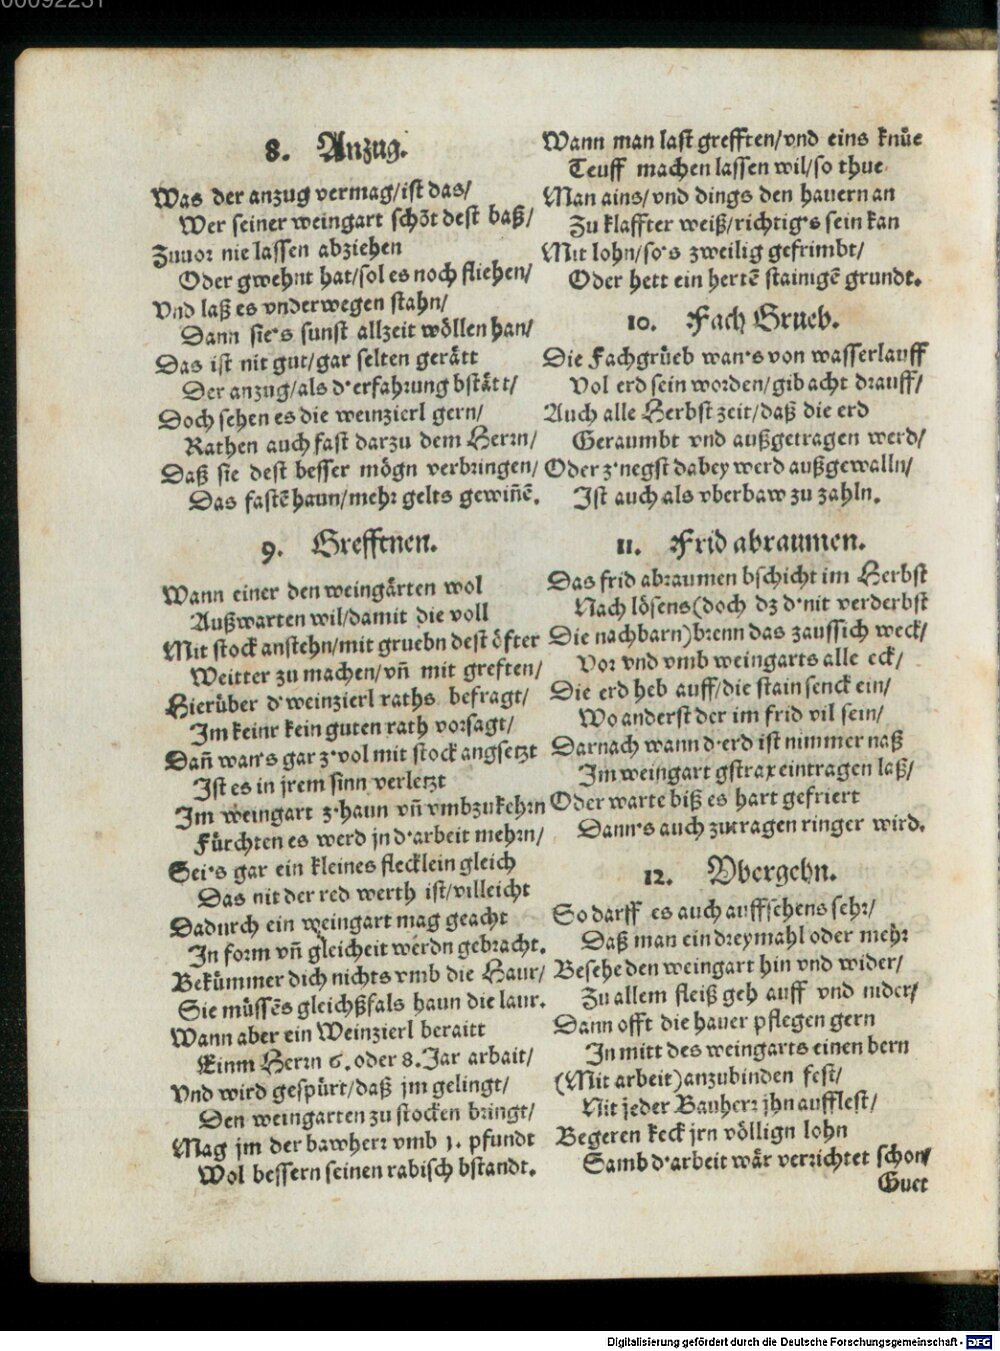 00092231
8. Anzug.
Was der anzug vermag/ist das/
Wer seiner weingart schõt dest baß/
Zuuor nie lassen abziehen
Oder gwehnt hat/sol es noch fliehen/
Vnd laß es vnderwegen stahn/
Dann sie's sunst allzeit wöllen han/
Das ist nit gut/gar selten gerätt
Der anzug/als d'erfahrung bstätt/
Doch sehen es die weinzierl gern/
Rathen auch fast darzu dem Herrn/
Daß sie dest besser mögn verbringen/
Das fastẽ haun/mehr gelts gewiñẽ.
9. Grefftnen.
Wann einer den weingärten wol
Außwarten wil/damit die voll
Mit stock anstehn/mit gruebn dest öfter
Weitter zu machen/vñ mit greften/
Hierüber d'weinzierl raths befragt/
Im keinr kein guten rath vorsagt/
Dañ wan's gar z'vol mit stock angsetzt
Ist es in jrem sinn verletzt
Im weingart z'haun vñ vmbzukehrn
Fürchten es werd jn d'arbeit mehrn/
Sei's gar ein kleines flecklein gleich
Das nit der red werth ist/villeicht
Dadurch ein weingart mag geacht
In form vñ gleicheit werdn gebracht.
Bekümmer dich nichts vmb die Haur/
Sie müssẽs gleichßfals haun die laur.
Wann aber ein Weinzierl beraitt
Einm Herrn 6. oder 8. Jar arbait/
Vnd wird gespürt/daß jm gelingt/
Den weingarten zu stocken bringt/
Mag jm der bawherr vmb 1. pfundt
Wol bessern seinen rabisch bstandt.
Wann man last grefften/vnd eins knüe
Teuff machen lassen wil/so thue
Man ains/vnd dings den hauern an
Zu klaffter weiß/richtig's sein kan
Mit lohn/so's zweilig gefrimbt/
Oder hett ein hertẽ stainigẽ grundt.
10. Fach Grueb.
Die Fachgrüeb wan's von wasserlauff
Vol erd sein worden/gib acht drauff/
Auch alle Herbst zeit/daß die erd
Geraumbt vnd außgetragen werd/
Oder z'negst dabey werd außgewalln/
Ist auch als vberbaw zu zahln.
11. Frid abraumen.
Das frid abraumen bschicht im Herbst
Nach lösens(doch dz d'nit verderbst
Die nachbarn)brenn das zaussich weck/
Vor vnd vmb weingarts alle eck/
Die erd heb auff/die stain senck ein/
Wo anderst der im frid vil sein/
Darnach wann d'erd ist nimmer naß
Im weingart gstrax eintragen laß/
Oder warte biß es hart gefriert
Dann's auch zutragen ringer wird.
12. Vbergehn.
So darff es auch auffsehens sehr/
Daß man ein dreymahl oder mehr
Besehe den weingart hin vnd wider/
Zu allem fleiß geh auff vnd nider/
Dann offt die hauer pflegen gern
In mitt des weingarts einen bern
(Mit arbeit)anzubinden fest/
Nit jeder Bauherr jhn aufflest/
Begeren keck jrn völlign lohn
Samb d'arbeit wär verrichtet schon/
Guet
Digitalisierung gefördert durch die Deutsche Forschungsgemeinschaft - DFG